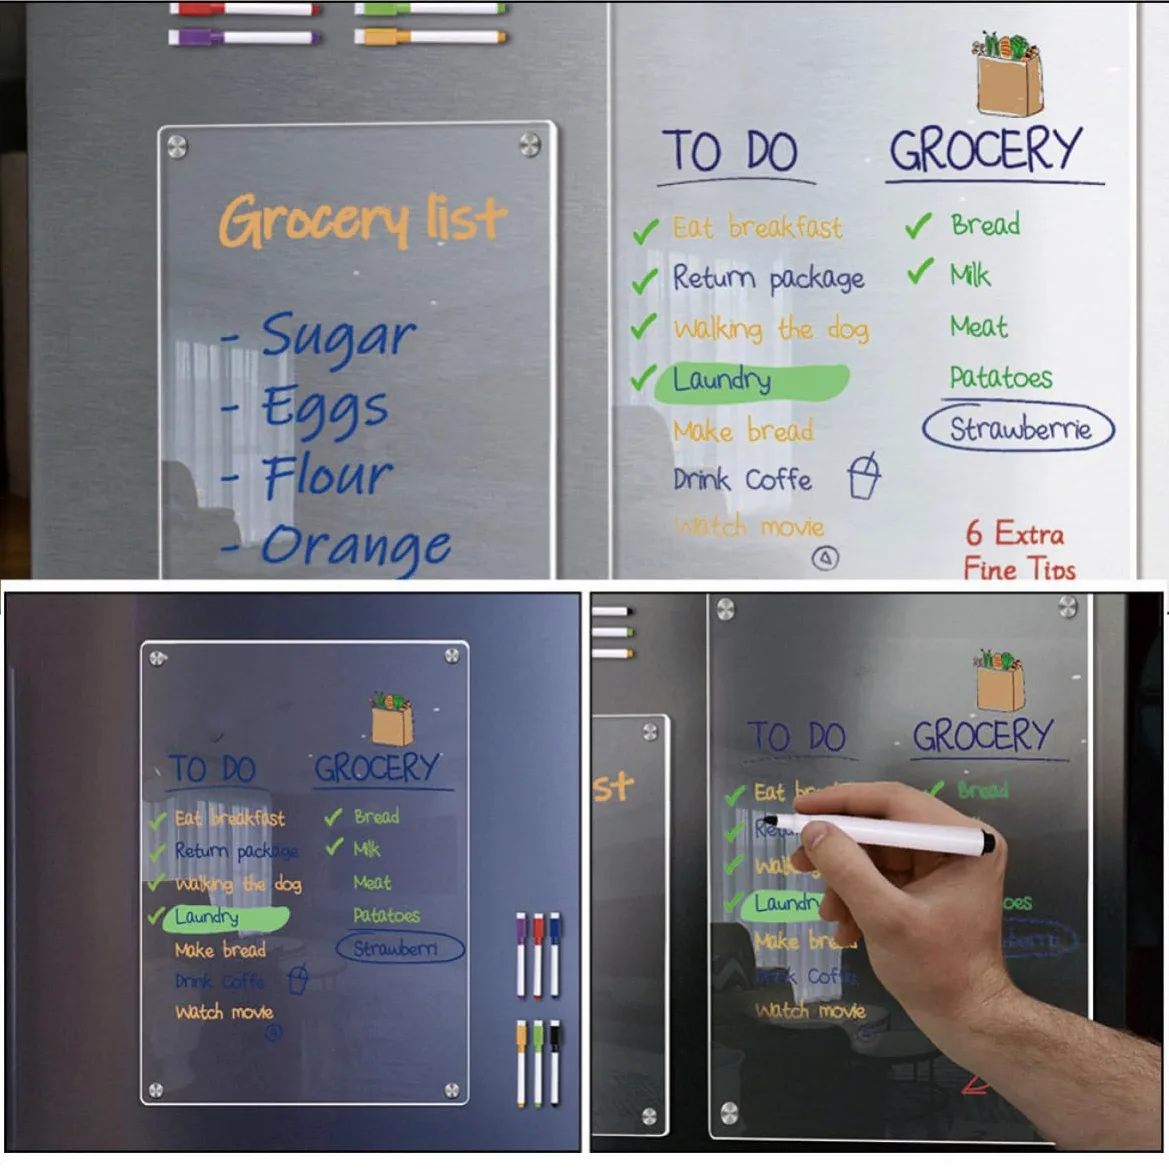 Grocery list
- Sugar
- Eggs
- Flour
- Orange
TO DO
Eat breakfast
Return package
Walking the dog
Laundry
Make bread
Drink Coffe
Watch movie
GROCERY
Bread
Milk
Meat
Patatoes
Strawberrie
6 Extra
Fine Tips
TO DO
Eat breakfast
Return package
Walking the dog
Laundry
Make bread
Drink Coffe
Watch movie
GROCERY
Bread
Milk
Meat
Patatoes
Strawberri
st
TO DO
Eat br
Retu
Walk
Laundr
Make brea
Drink Coffe
Watch movie
GROCERY
Bread
oes